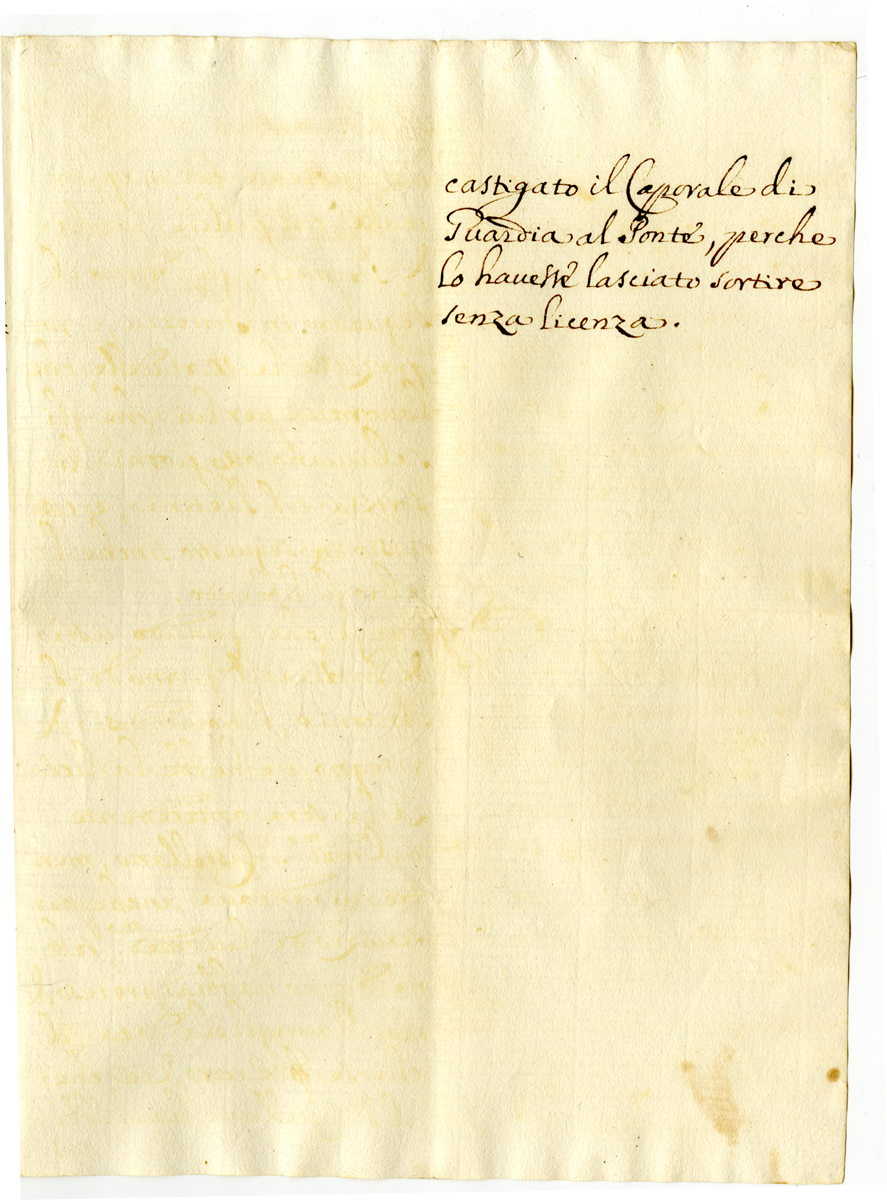 castigato il Caporale di
Guardia al Ponte, perche
lo havesse lasciato sortire
senza licenza.